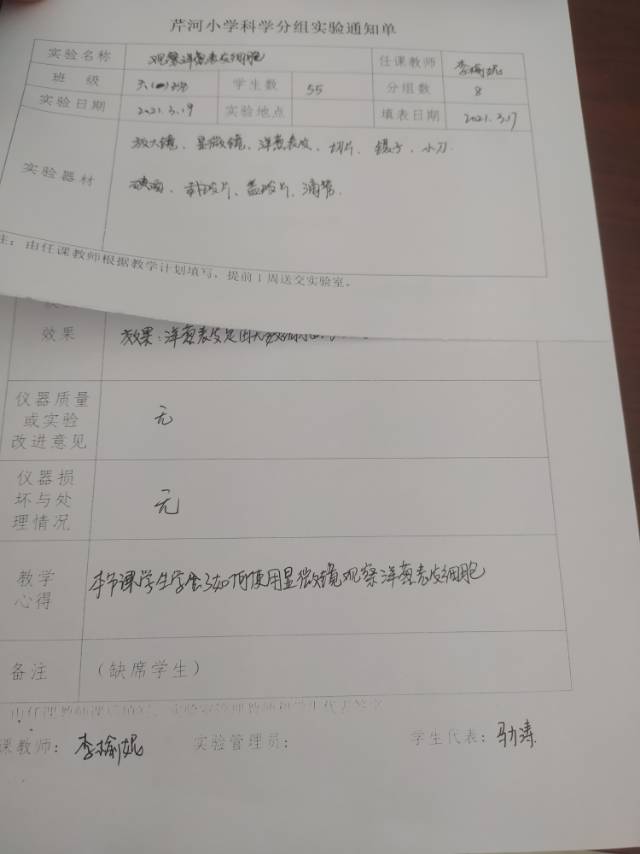 芹河小学科学分组实验通知单
实验名称 观察洋葱表皮细胞 任课教师 李榆妮
班 级 学生数 55 分组数 8
实验日期 2021.3.19 实验地点 填表日期 2021.3.17
放大镜、显微镜、洋葱表皮、切片、镊子、小刀
实验器材
碘酒、载玻片、盖玻片、滴管.
注：由任课教师根据教学计划填写，提前1周送交实验室。
效果 效果：洋葱表皮是由
仪器质量
或实验 无
改进意见
仪器损
坏与处 无
理情况
教学 本节课学生学会了如何使用显微镜观察洋葱表皮细胞
心得
备注 （缺席学生）
课教师：李榆妮 实验管理员： 学生代表：马涛